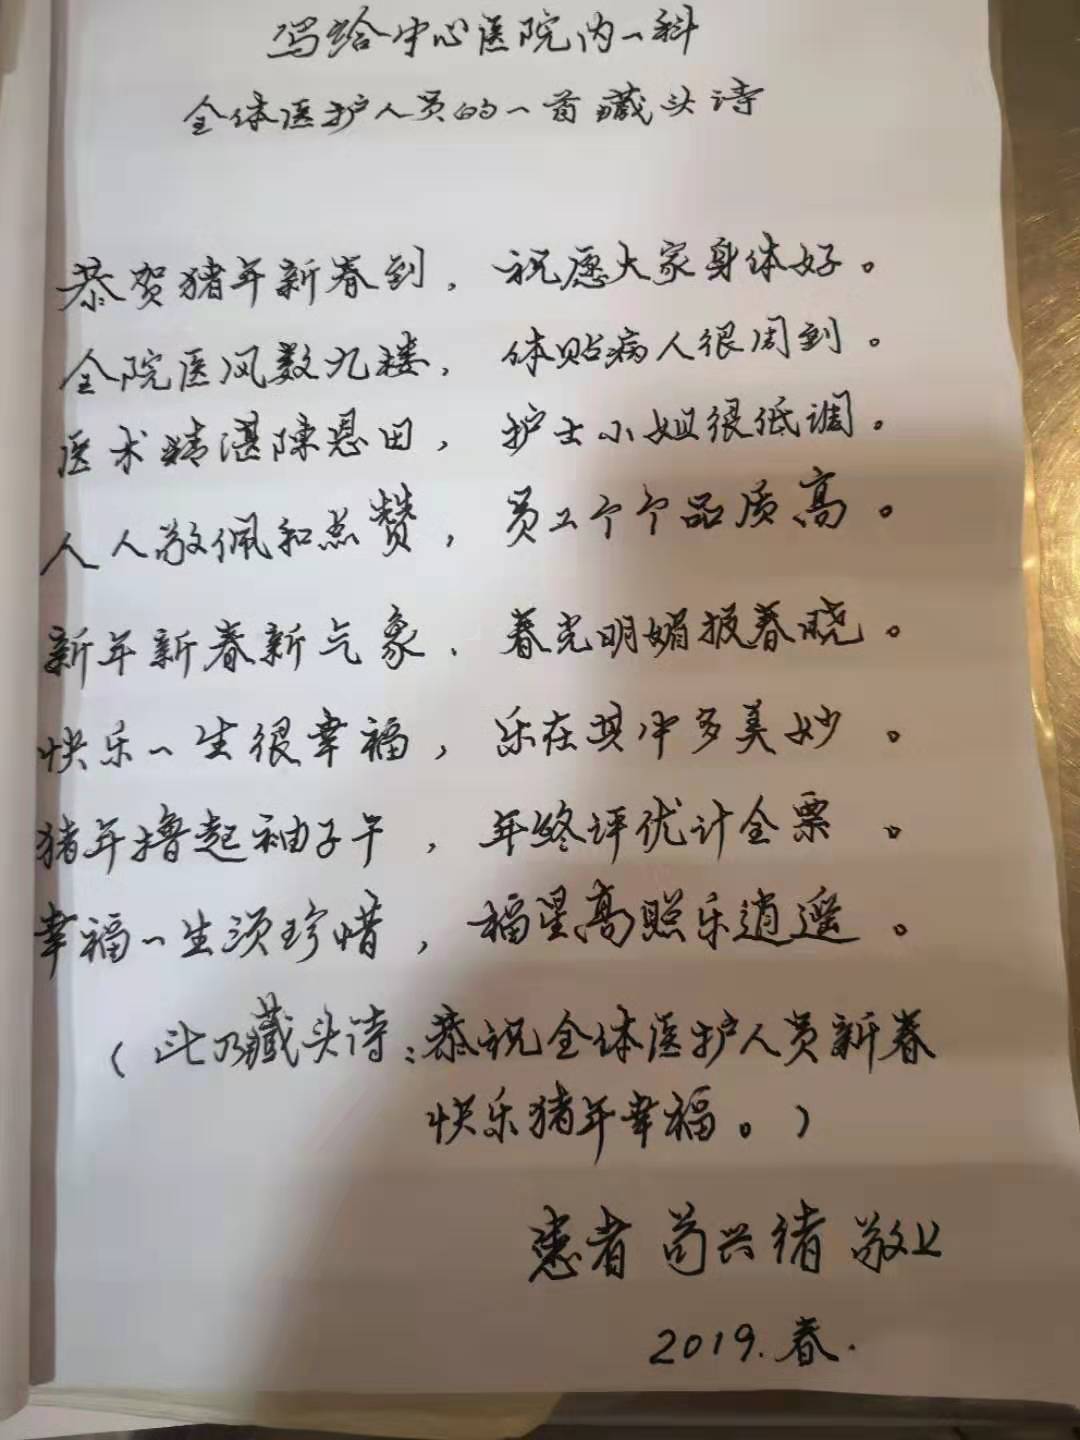 写给中心医院内一科
全体医护人员的一首藏头诗
恭贺猪年新春到，祝愿大家身体好。
全院医风数九楼，体贴病人很周到。
医术精湛陈恩田，护士小姐很低调。
人人敬佩和点赞，员工个个品质高。
新年新春新气象，春光明媚报春晓。
快乐一生很幸福，乐在其中多美妙。
猪年撸起袖子干，年终评优计全票。
幸福一生须珍惜，福星高照乐逍遥。
（此乃藏头诗：恭祝全体医护人员新春
快乐猪年幸福。）
患者 苟兴绪 敬上
2019.春.